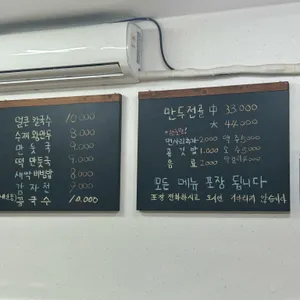 얼큰 칼국수 10.000
수제 왕만두 8.000
만둣국 9.000
떡 만둣국 9.000
새싹비빔밥 8.000
감자전 9.000
콩국수 10.000
만두전골 中 33.000
大 44.000
면사리추가 2.000
공깃밥 1.000
음료 2.000
모든 메뉴 포장 됩니다
포장 전화하시고 오시면 기다리지 않습니다